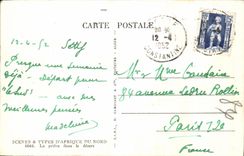 CARTE POSTALE
12-4-52 Sétif
Presque une semaine
déjà - Départ pour
avec nos
meilleures pensées
Madeleine
SCENES & TYPES D'AFRIQUE DU NORD
La prière dans le désert
12-4
1952
CONSTANTINE
Mr & Mme Gaudain
84 avenue Ledru Rollin
Paris 12e
France